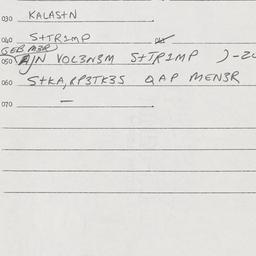 030 KALAS+N
040 S+TR1MP
GEB M3R
050 AJN VOL3N3M S+TR1MP )-2
060 S+KA, RP3TK3S QAP MEN3R
070 —